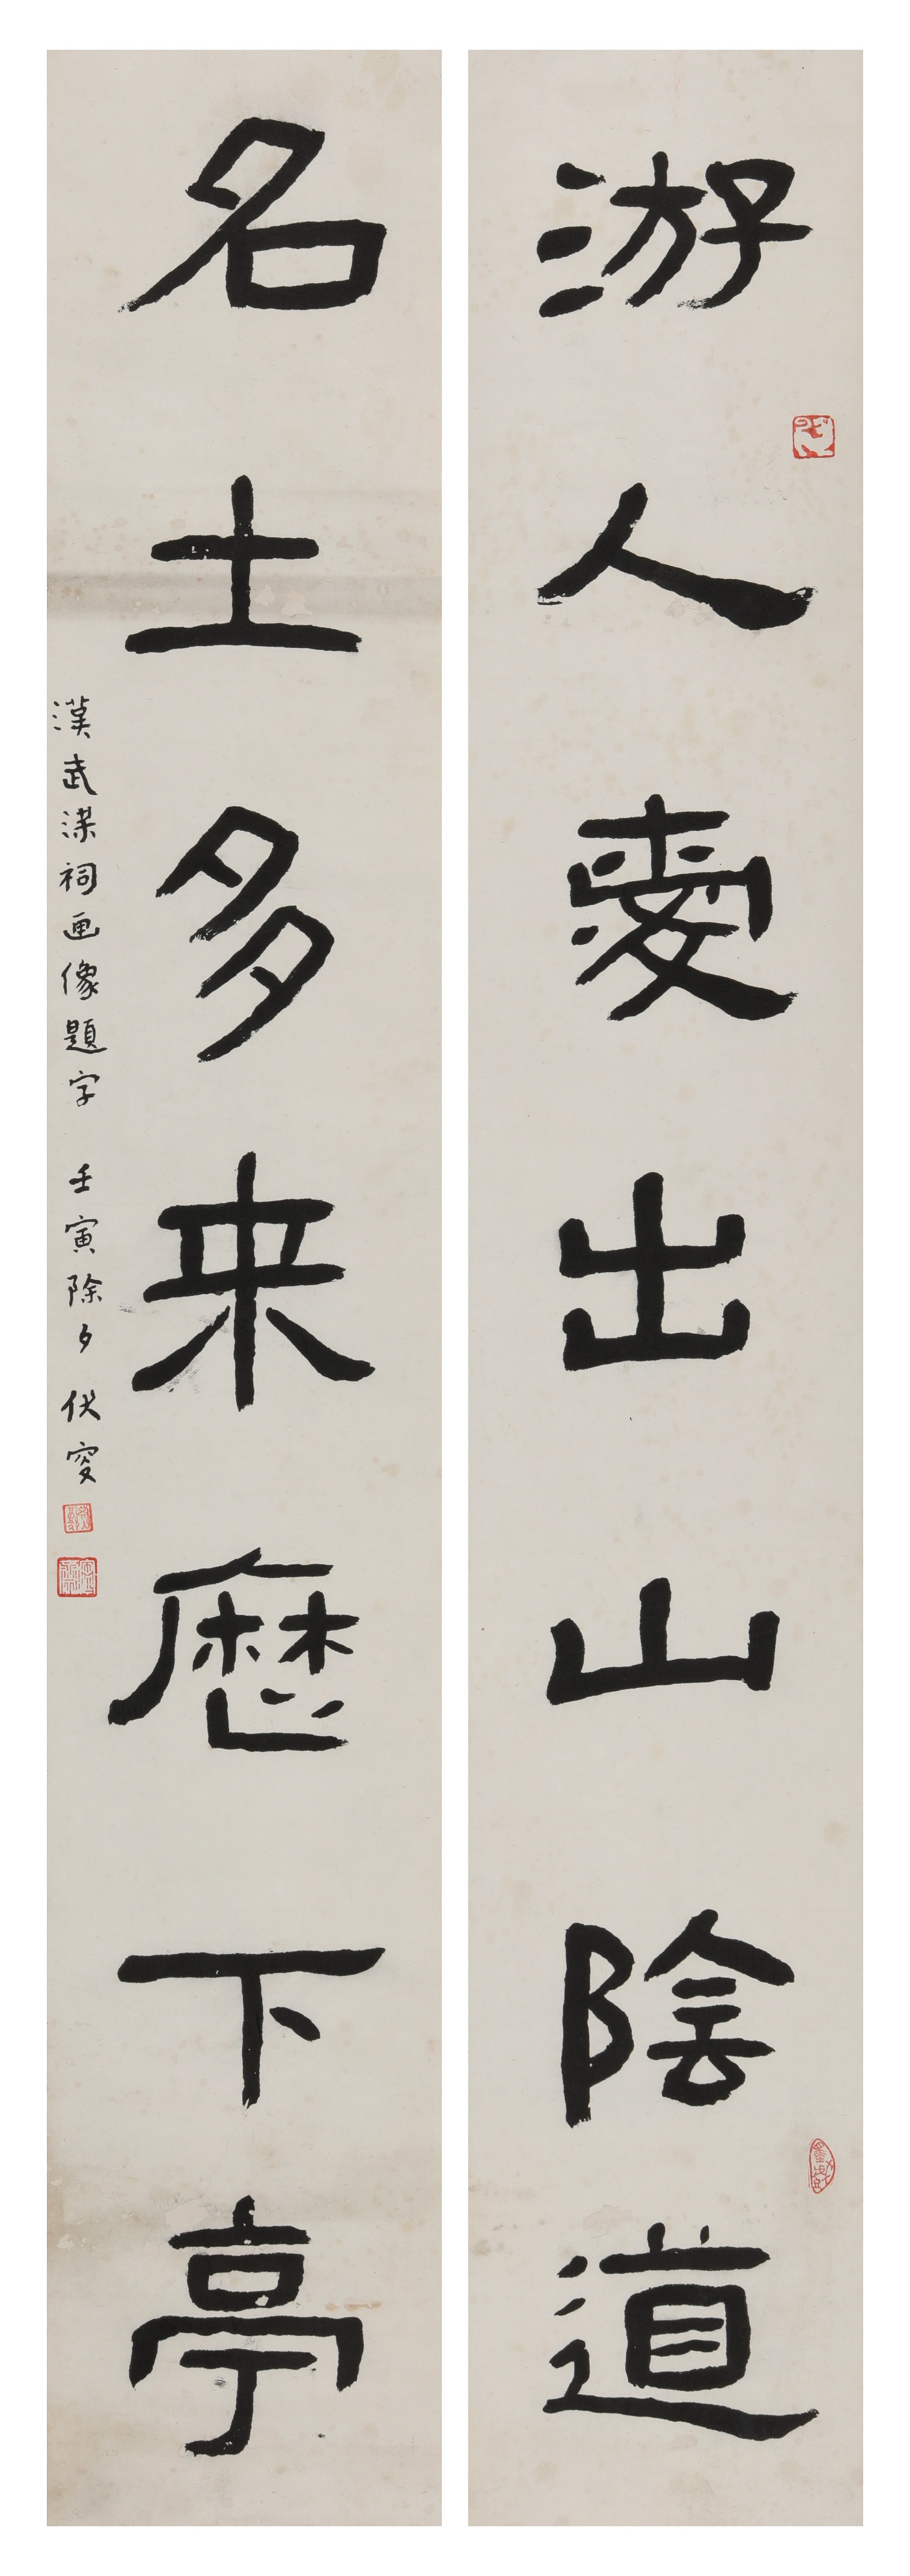 游人愛出山陰道
名士多来歷下亭
漢武梁祠画像題字 壬寅除夕 伏叟